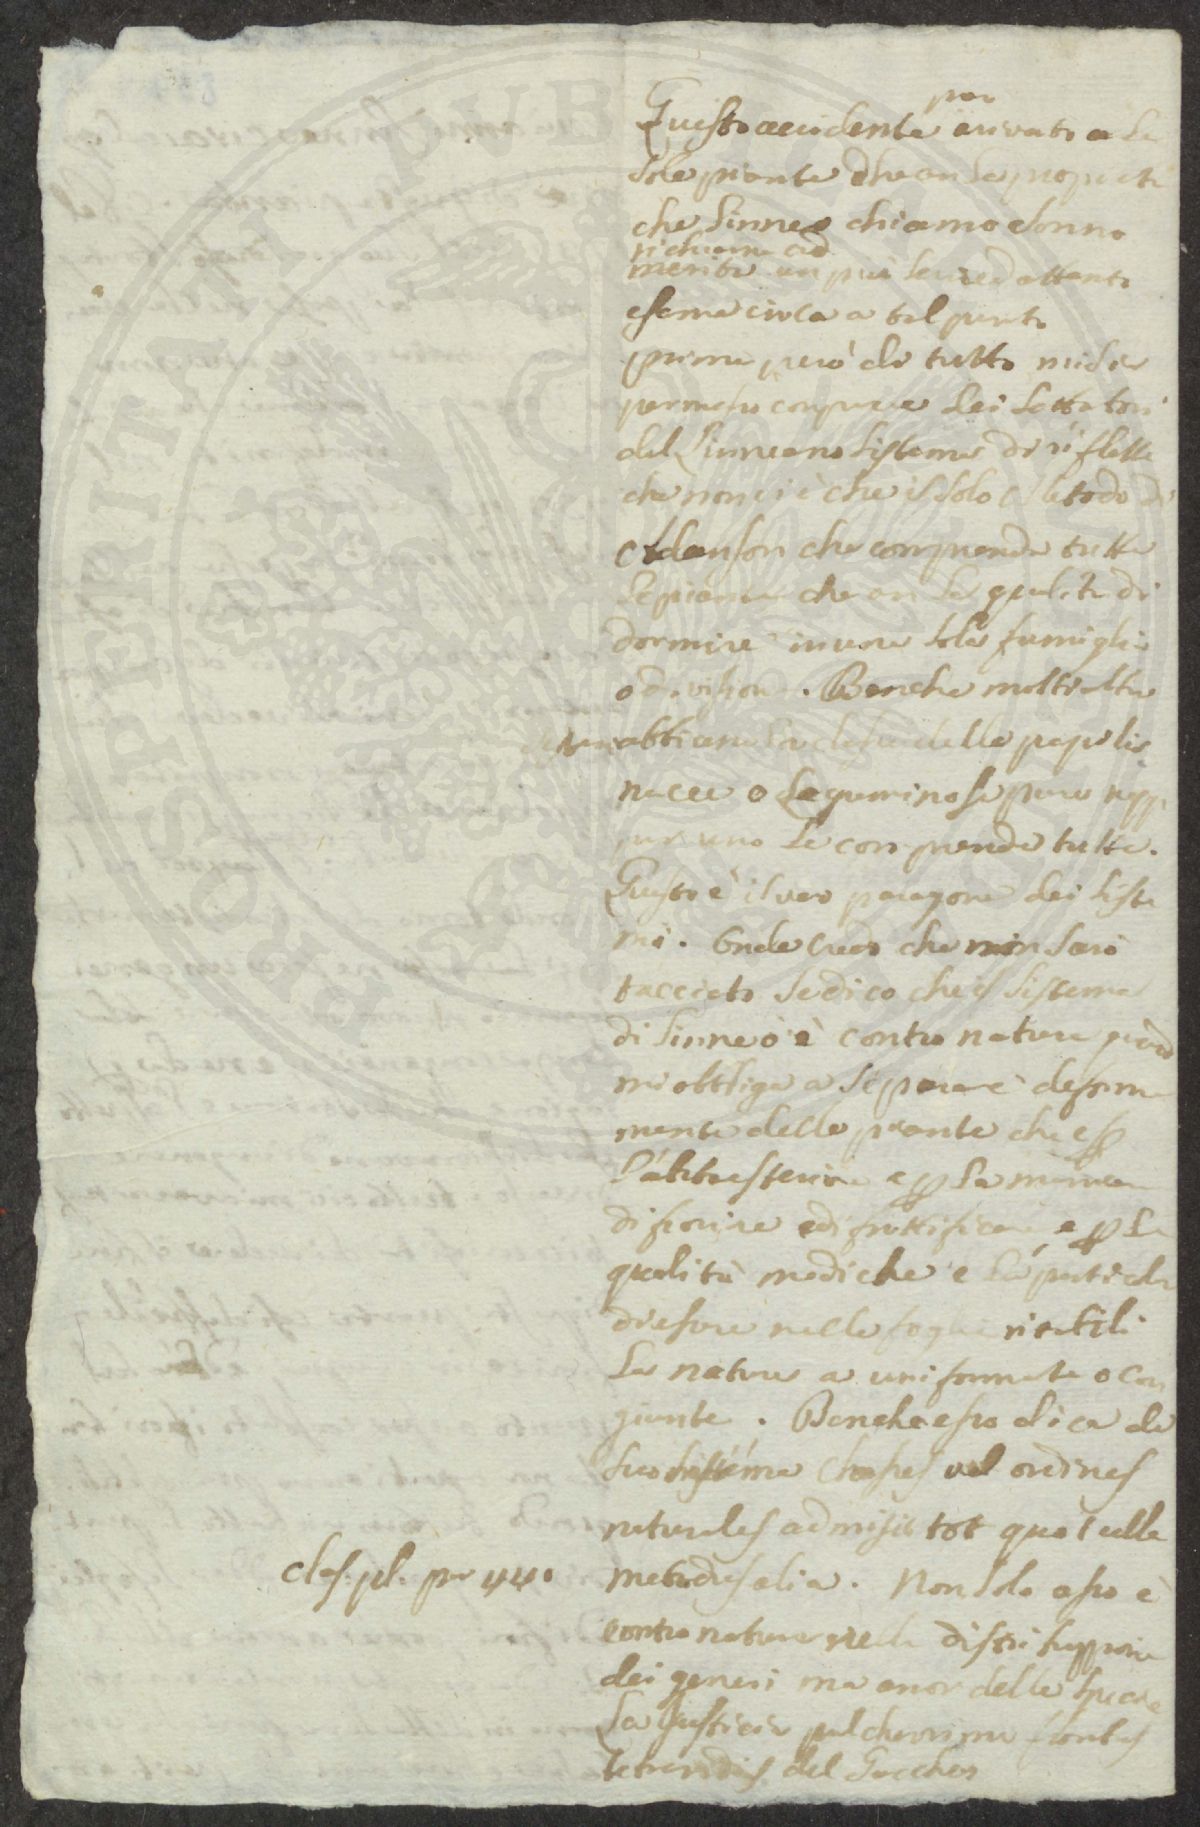 per
Questo accidente arivato a le
sole piante che an la proprietà
che Linneo chiamo sonno
richiama ad
merita un più serio ed attento
esame circa a tal punto
prima però di tutto mi sia
permesso con pace dei Settatori
del Linneano Sistema di riflette
che non ci è che il solo Metodo di
Adanson che comprende tutte
le piante che an la qualità di
dormire in una sola famiglia
o divisione. Benche molti altri
abbiano la classe delle papilio
nacee o Leguminose pure nepp
pur uno le comprende tutte.
Questo è il vero paragone dei siste
mi. Onde credo che non sarò
tacciato se dico che il sistema
di Linneo è contro natura
mi obbliga a separare
mente delle piante che p
l'abito esteriore e p la maniera
di fiorire e di fruttificare e p le
qualità mediche e la particola
di esere nelle foglie iritabili
la natura a uniformate o con
giunte. Benche esso dica de
suo sistema Classes vel ordines
naturales admisit tot quot ulla
methodus alia. Non solo esso è
contro natura nella distribuzione
dei generi ma ancor delle specie
La Justicia pulcherrima
tetrandis del Jacchen
clas. pl. par 440